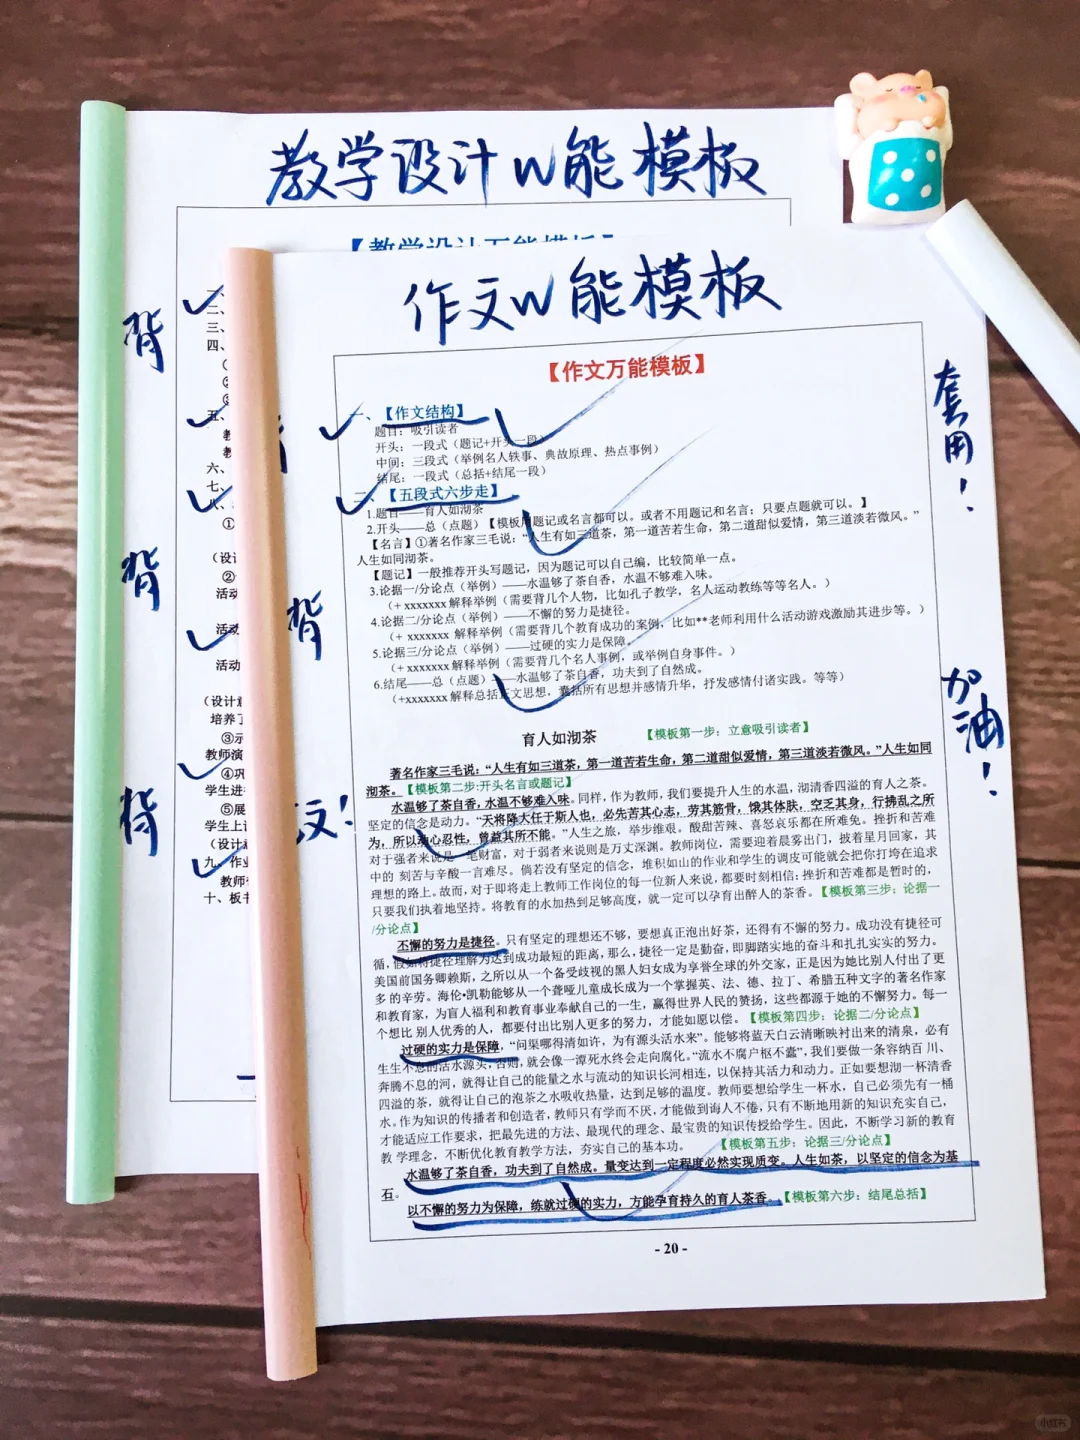 教学设计W能模板
【教学设计万能模板】
一、
二、
三、
四、
五、
六、
七、
八、
①
(设计
②
活动
活动
活动
(设计意
培养了
③示
教师演
④巩
学生进
⑤展
学生上
(设计
九、作业
教师
十、板书
背
背
背
作文W能模板
【作文万能模板】
一、【作文结构】
题目：吸引读者
开头：一段式（题记+开头一段）
中间：三段式（举例名人轶事、典故原理、热点事例）
结尾：一段式（总括+结尾一段）
二、【五段式六步走】
1.题目——育人如沏茶
2.开头——总（点题）【模板用题记或名言都可以。或者不用题记和名言；只要点题就可以。】
【名言】①著名作家三毛说：“人生有如三道茶，第一道苦若生命，第二道甜似爱情，第三道淡若微风。”
人生如同沏茶。
【题记】一般推荐开头写题记，因为题记可以自己编，比较简单一点。
3.论据一/分论点（举例）——水温够了茶自香，水温不够难入味。
（+ xxxxxxx 解释举例（需要背几个人物，比如孔子教学，名人运动教练等等名人。）
4.论据二/分论点（举例）——不懈的努力是捷径。
（+ xxxxxxx 解释举例（需要背几个教育成功的案例，比如**老师利用什么活动游戏激励其进步等。）
5.论据三/分论点（举例）——过硬的实力是保障。
（+ xxxxxxx 解释举例（需要背几个名人事例，或举例自身事件。）
6.结尾——总（点题）——水温够了茶自香，功夫到了自然成。
（+xxxxxxx 解释总括正文思想，囊括所有思想并感情升华，抒发感情付诸实践。等等）
育人如沏茶 【模板第一步：立意吸引读者】
著名作家三毛说：“人生有如三道茶，第一道苦若生命，第二道甜似爱情，第三道淡若微风。”人生如同
沏茶。【模板第二步:开头名言或题记】
水温够了茶自香,水温不够难入味。同样，作为教师，我们要提升人生的水温，沏清香四溢的育人之茶。
坚定的信念是动力。“天将降大任于斯人也，必先苦其心志，劳其筋骨，饿其体肤，空乏其身，行拂乱之所
为，所以动心忍性，曾益其所不能。”人生之旅，举步维艰。酸甜苦辣、喜怒哀乐都在所难免。挫折和苦难
对于强者来说是一笔财富，对于弱者来说则是万丈深渊。教师岗位，需要迎着晨雾出门，披着星月回家，其
中的 刻苦与辛酸一言难尽。倘若没有坚定的信念，堆积如山的作业和学生的调皮可能就会把你打垮在追求
理想的路上。故而，对于即将走上教师工作岗位的每一位新人来说，都要时刻相信；挫折和苦难都是暂时的，
只要我们执着地坚持。将教育的水加热到足够高度，就一定可以孕育出醉人的茶香。【模板第三步：论据一
/分论点】
不懈的努力是捷径。只有坚定的理想还不够，要想真正泡出好茶，还得有不懈的努力。成功没有捷径可
循，假如将捷径理解为达到成功最短的距离，那么，捷径一定是勤奋，即脚踏实地的奋斗和扎扎实实的努力。
美国前国务卿赖斯，之所以从一个备受歧视的黑人妇女成为享誉全球的外交家，正是因为她比别人付出了更
多的辛劳。海伦•凯勒能够从一个聋哑儿童成长成为一个掌握英、法、德、拉丁、希腊五种文字的著名作家
和教育家，为盲人福利和教育事业奉献自己的一生，赢得世界人民的赞扬，这些都源于她的不懈努力。每一
个想比 别人优秀的人，都要付出比别人更多的努力，才能如愿以偿。【模板第四步：论据二/分论点】
过硬的实力是保障，“问渠哪得清如许，为有源头活水来”。能够将蓝天白云清晰映衬出来的清泉，必有
生生不息的活水源头，否则，就会像一潭死水终会走向腐化。“流水不腐户枢不蠹”，我们要做一条容纳百 川、
奔腾不息的河，就得让自己的能量之水与流动的知识长河相连，以保持其活力和动力。正如要想沏一杯清香
四溢的茶，就得让自己的泡茶之水吸收热量，达到足够的温度。教师要想给学生一杯水，自己必须先有一桶
水。作为知识的传播者和创造者，教师只有学而不厌，才能做到诲人不倦，只有不断地用新的知识充实自己，
才能适应工作要求，把最先进的方法、最现代的理念、最宝贵的知识传授给学生。因此，不断学习新的教育
教 学理念，不断优化教育教学方法，夯实自己的基本功。 【模板第五步：论据三/分论点】
水温够了茶自香，功夫到了自然成。量变达到一定程度必然实现质变。人生如茶，以坚定的信念为基
石。
以不懈的努力为保障，练就过硬的实力，方能孕育持久的育人茶香。【模板第六步：结尾总括】
- 20 -
背
文！
套用！
加油！
小红书